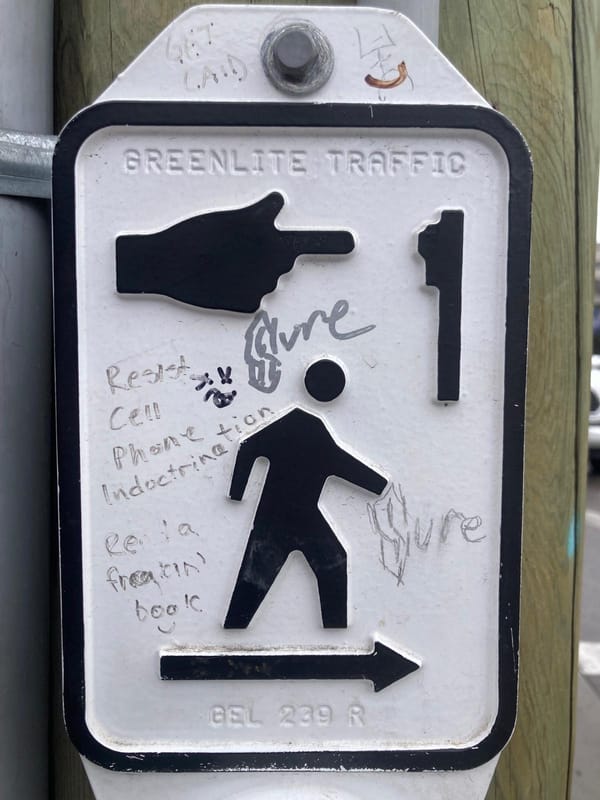 GET
LAID
GREENLITE TRAFFIC
Sure
Resist
Cell
Phone
Indoctrination
Sure
Read a
freakin'
book
GEL 239 R